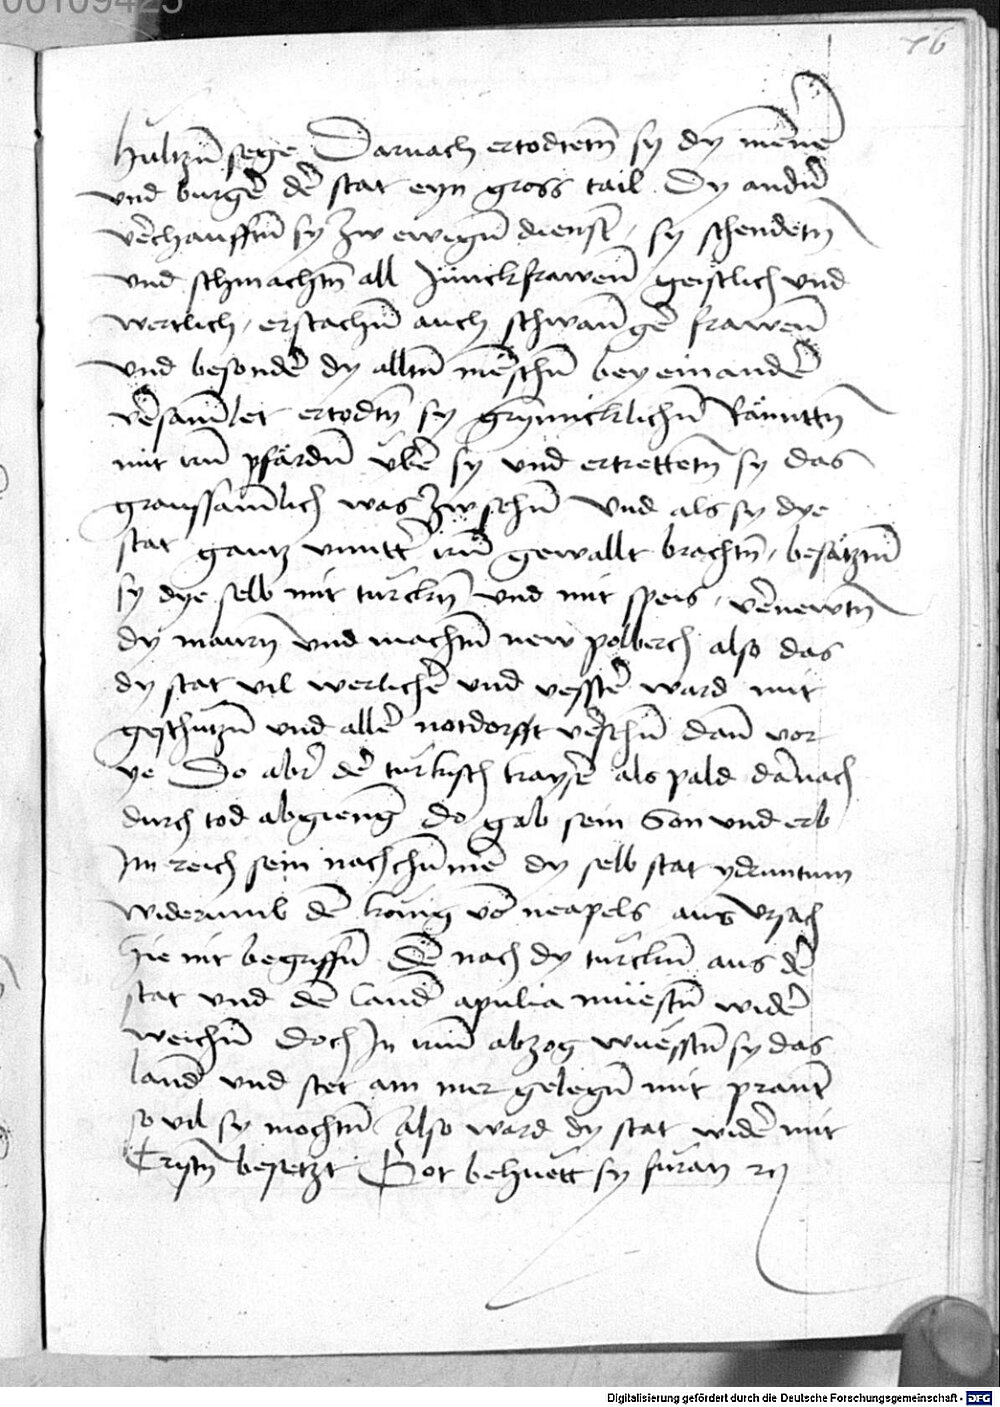 00109425
76
hultzin̄ sege Darnach ertodtetn̄ sy dy men̄er
und burgē der stat eyn gross tail Dy andn̄
verchaufftn̄ sy zw ewign̄ dienst / sy schendetn̄
und schmachtn̄ all Junckfrawen̄ geistlich und
wertlich / erstachn̄ auch schwan̄ger frawen̄
und besonder dy alltn̄ menschn̄ bey einander
versamlet ertodtn̄ sy grymicklichn̄ Ranntn̄
mit irn̄ pfärdn̄ uber sy und ertrettetn̄ sy das
graussamlich was zw sehn̄ Und als sy dye
stat gantz unntter irn̄ gewallt brachtn̄ / besätztn̄
sy dye selb mit turckn̄ und mit speis / vernewtn̄
dy maurn̄ und machtn̄ new polberch also das
dy stat vil werlicher und vesster ward mit
geschutzn̄ und aller notdorfft versehn̄ dan̄ vor
ye Do aber der turkisch kayser als pald darnach
durch tod abgieng do gab sein Son und erb
Im reich sein nachchumer dy selb stat ydruntum
widerumb dem konig von neapels aus ursach
hie nit begriffn̄ Den nach dy turckn̄ aus der
stat und dem Lannd apulia müestn̄ wider
weichn̄ Doch In irm̄ abzog wuesstn̄ sy das
lannd und stet am mer gelegn̄ mit prant
so vil sy mochtn̄ Also ward dy stat wider mit
Cristn̄ besetzt Got behuett sy furan
Digitalisierung gefördert durch die Deutsche Forschungsgemeinschaft - DFG